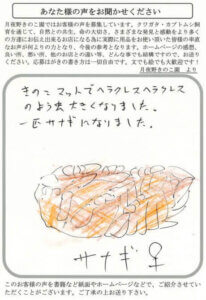 あなた様の声をお聞かせください
月夜野きのこ園ではお客様の声を募集しています。クワガタ・カブトムシ飼
育を通じて、自然との共生、命の大切さ、さまざまな発見と感動をより多く
の方達にお伝え出来るお店になる為に実際に用品をお使い頂いた皆様の率直
なお声が何よりの力となり、今後の参考となります。ホームページの感想、
良い所、悪い所、他のお店との違い等、どんな事でも結構ですので、お送り
ください。応募はがきの書き方は一切自由です。文でも絵でも大歓迎です！
月夜野きのこ園 より
きのこマットでヘラクレスヘラクレス
のよう虫大きくなりました。
一匹サナギになりました。
サナギ♀
このお客様の声を書籍など紙面やホームページなどで、ご紹介させてい
ただくことがございます。ご了承の上お送り下さい。